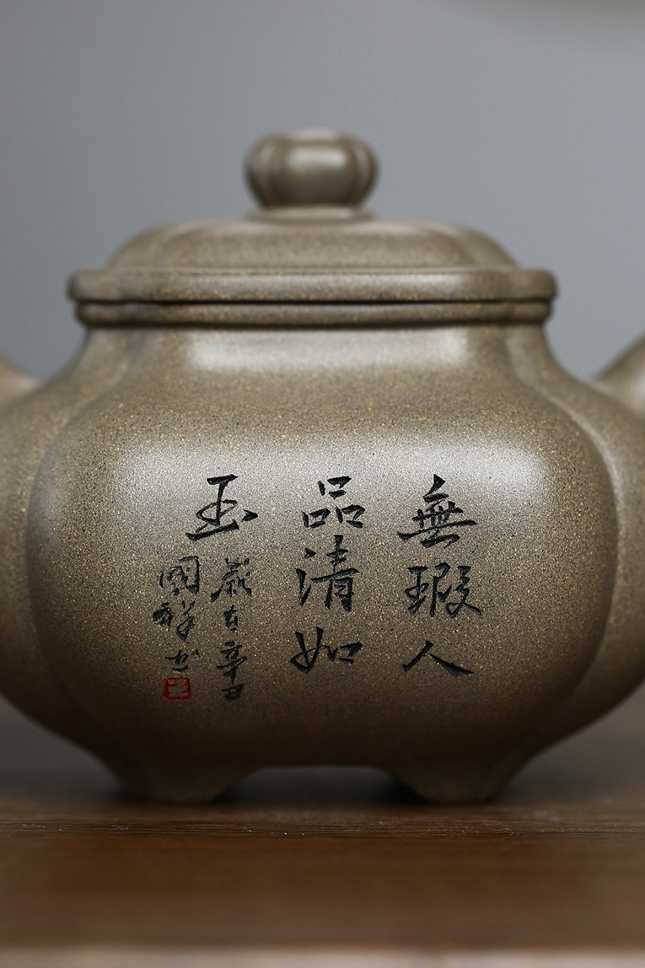 無瑕人
品清如
玉
歲在辛丑
國祥書